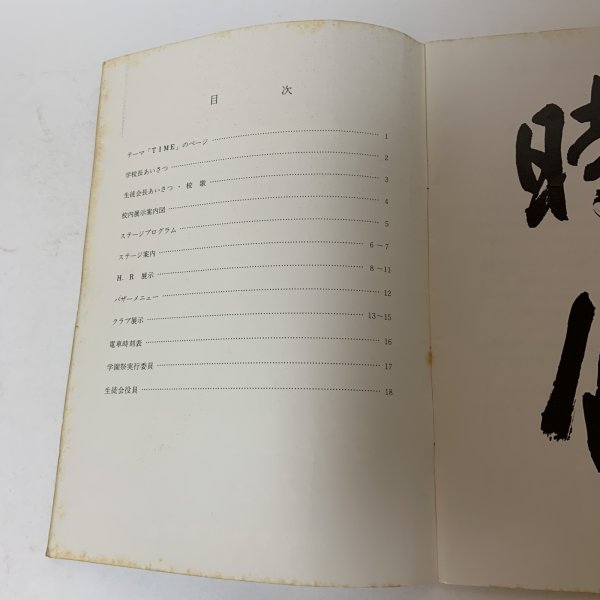 目次
テーマ「TIME」のページ 1
学校長あいさつ 2
生徒会長あいさつ・校歌 3
校内展示案内図 4
ステージプログラム 5
ステージ案内 6〜7
H.R 展示 8〜11
バザーメニュー 12
クラブ展示 13〜15
電車時刻表 16
学園祭実行委員 17
生徒会役員 18
時